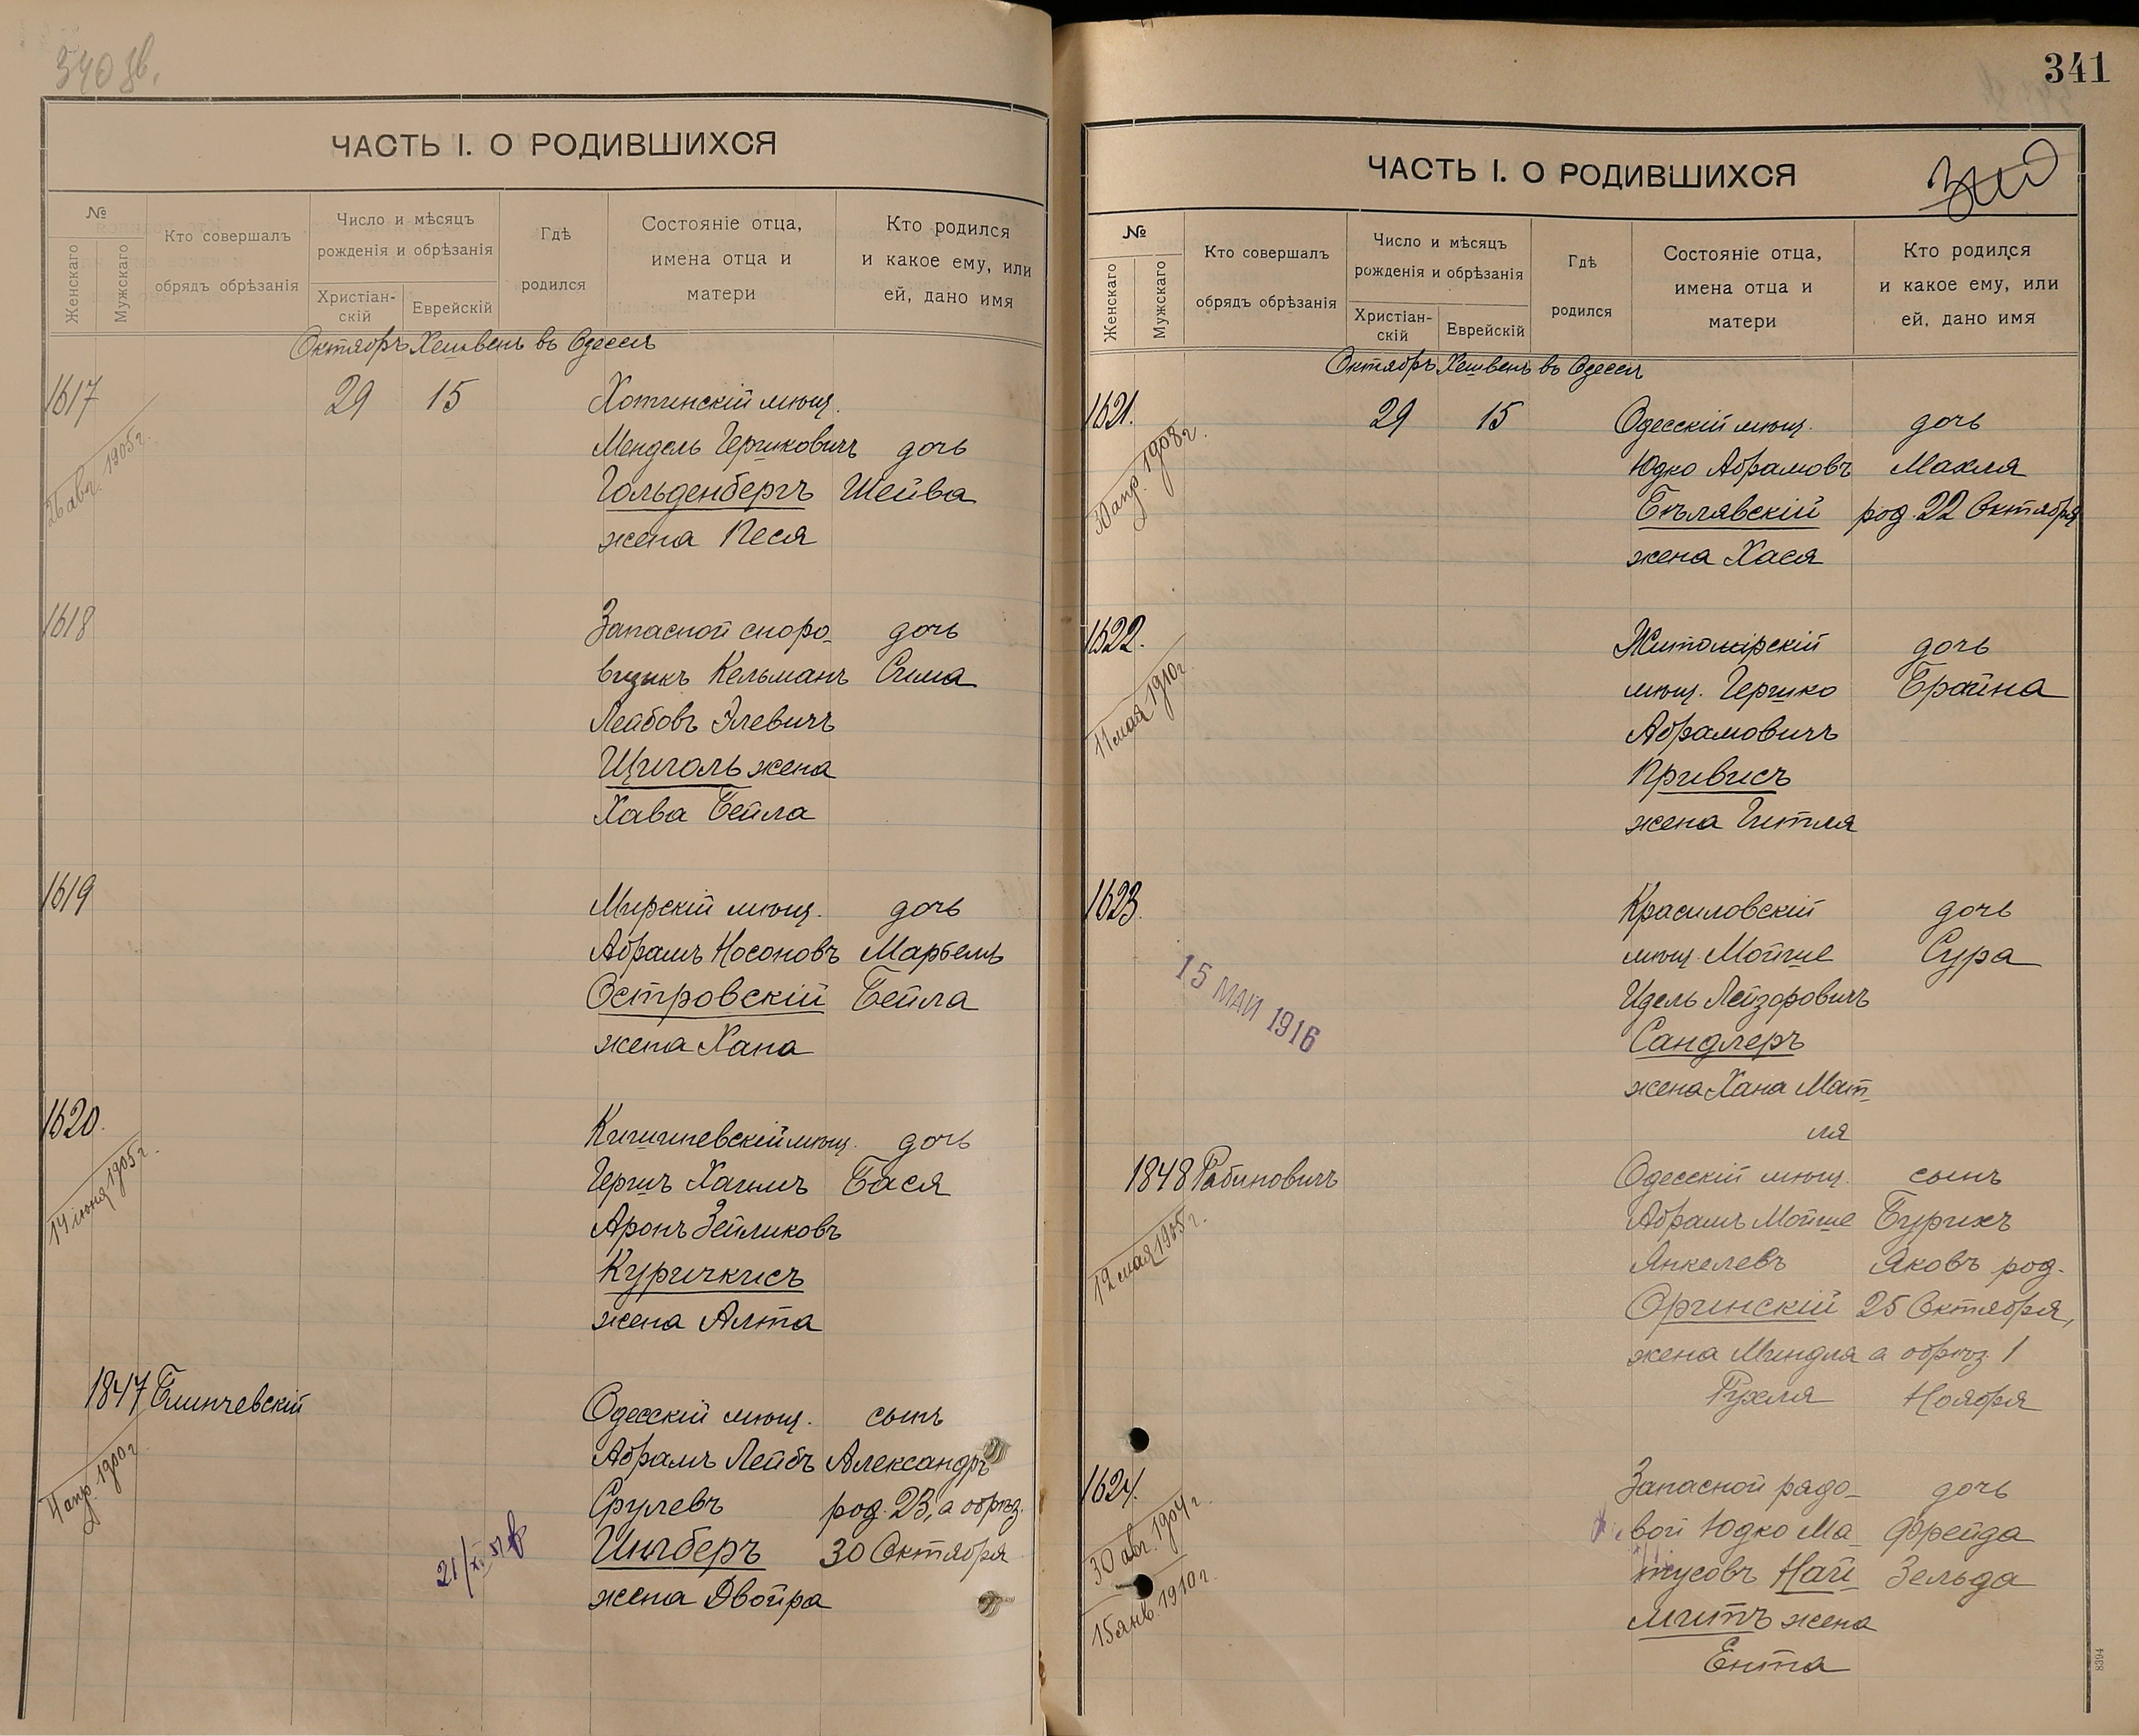 340 зв.
ЧАСТЬ I. О РОДИВШИХСЯ
№
Женскаго
Мужскаго
Кто совершалъ
обрядъ обрѣзанія
Число и мѣсяцъ
рожденія и обрѣзанія
Христіан-
скій
Еврейскій
Гдѣ
родился
Состояніе отца,
имена отца и
матери
Кто родился
и какое ему, или
ей, дано имя
Октябрь Хешвень въ Одессѣ
1617 29 15 Хотинскій мѣщ.
26 авг. 1905 г.
Мендель Гершковичъ дочь
Гольденбергъ Шейва
жена Песя
1618 Запасной споро- дочь
Кельманъ Сима
Лейбовъ Элевичъ
Щиголь жена
Хава Бейла
1619 Мирскій мѣщ. дочь
Абрамъ Носоновъ Марьемъ
Островскій Бейла
жена Хана
1620. Кишиневскій мѣщ. дочь
14 июня 1905 г.
Гершъ Хаимъ Бася
Аронъ Зейликовъ
Куричкисъ
жена Алта
1847 Блинчевскій Одесскій мѣщ. сынъ
4 апр. 1910 г
Абрамъ Лейбъ Александръ
Срулевъ род. 23, а обрѣз.
Шинберъ 30 Октября
жена Двойра
341
ЧАСТЬ I. О РОДИВШИХСЯ
№
Женскаго
Мужскаго
Кто совершалъ
обрядъ обрѣзанія
Число и мѣсяцъ
рожденія и обрѣзанія
Христіан-
скій
Еврейскій
Гдѣ
родился
Состояніе отца,
имена отца и
матери
Кто родился
и какое ему, или
ей, дано имя
Октябрь Хешвень въ Одессѣ
1621. 29 15 Одесскій мѣщ. дочь
30 апр. 1908 г.
Юдко Абрамовъ Махля
Бѣлявскій род. 22 Октября
жена Хася
1622. Житомірскій дочь
11 мая 1910 г.
мѣщ. Гершко Брайна
Абрамовичъ
Привисъ
жена Гитля
1623. Красиловскій дочь
мѣщ. Мойше Сура
15 МАЙ 1916
Идель Лейзоровичъ
Сандлеръ
жена Хана Мат-
ля
1848 Рабиновичъ Одесскій мѣщ. сынъ
12 мая 1905 г.
Абрамъ Мойше Бурихъ
Янкелевъ Яковъ род.
Оргинскій 25 Октября,
жена Миндля а обрѣз. 1
Рухля Ноября
1624. Запасной рядо- дочь
30 авг. 1904 г.
15 янв. 1910 г.
вой Юдко Ма- Фрейда
тусовъ Най- Зельда
митъ жена
Ента
8394